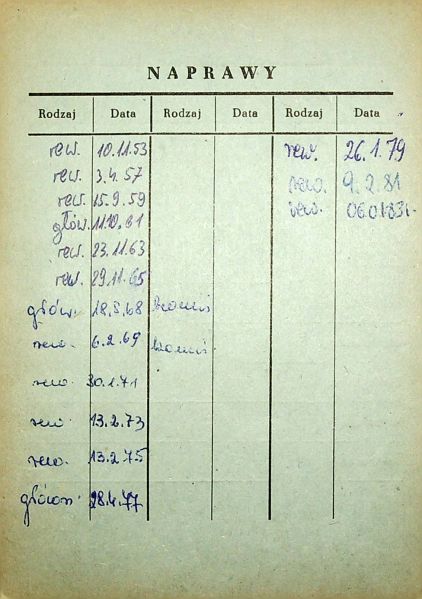 NAPRAWY
Rodzaj Data Rodzaj Data Rodzaj Data
rew. 10.11.53 rew. 26.1.79
rew. 3.4.57 rew. 9.2.81
rew. 15.9.59 rew. 06.01.83r.
głów. 11.10.61
rew. 23.11.63
rew. 29.11.65
głów. 18.5.68
rew. 6.2.69
rew. 30.1.71
rew 13.2.73
rew. 13.2.75
główn. 28.4.77